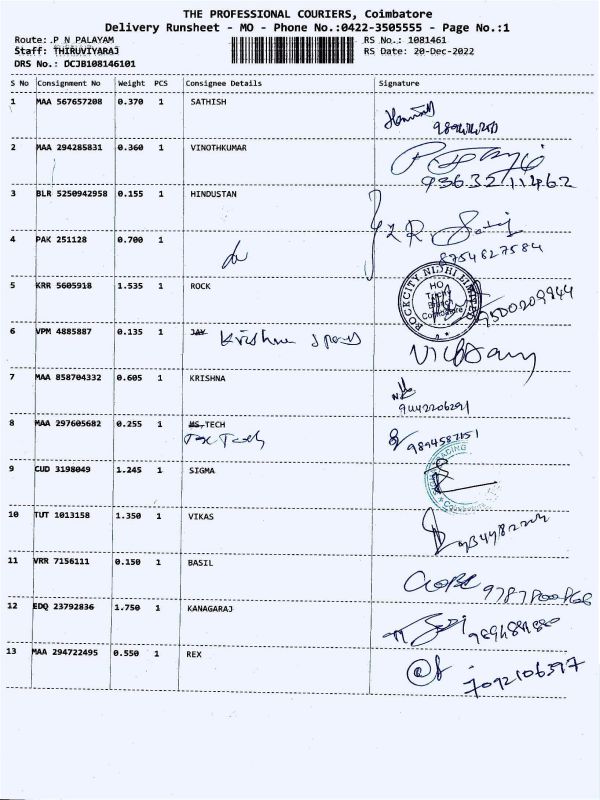 THE PROFESSIONAL COURIERS, Coimbatore
Delivery Runsheet - MO - Phone No.:0422-3505555 - Page No.:1
Route: P N PALAYAM RS No.: 1081461
Staff: THIRUVIYARAJ RS Date: 20-Dec-2022
DRS No.: DCJB108146101
S No Consignment No Weight PCS Consignee Details Signature
1 MAA 567657208 0.370 1 SATHISH
2 MAA 294285831 0.360 1 VINOTHKUMAR
9363211462
3 BLR 5250942958 0.155 1 HINDUSTAN
8754627584
4 PAK 251128 0.700 1
5 KRR 5605918 1.535 1 ROCK
ROCKCITY NIDHI LIMITED
HO
Coimbatore
9500209944
6 VPM 4885887 0.135 1 JAY Krishna
7 MAA 858704332 0.605 1 KRISHNA
9442206291
8 MAA 297605682 0.255 1 MS.TECH
Tex Tech
9894587151
9 CUD 3198049 1.245 1 SIGMA
10 TUT 1013158 1.350 1 VIKAS
11 VRR 7156111 0.150 1 BASIL
12 EDQ 23792836 1.750 1 KANAGARAJ
13 MAA 294722495 0.550 1 REX
7092106397